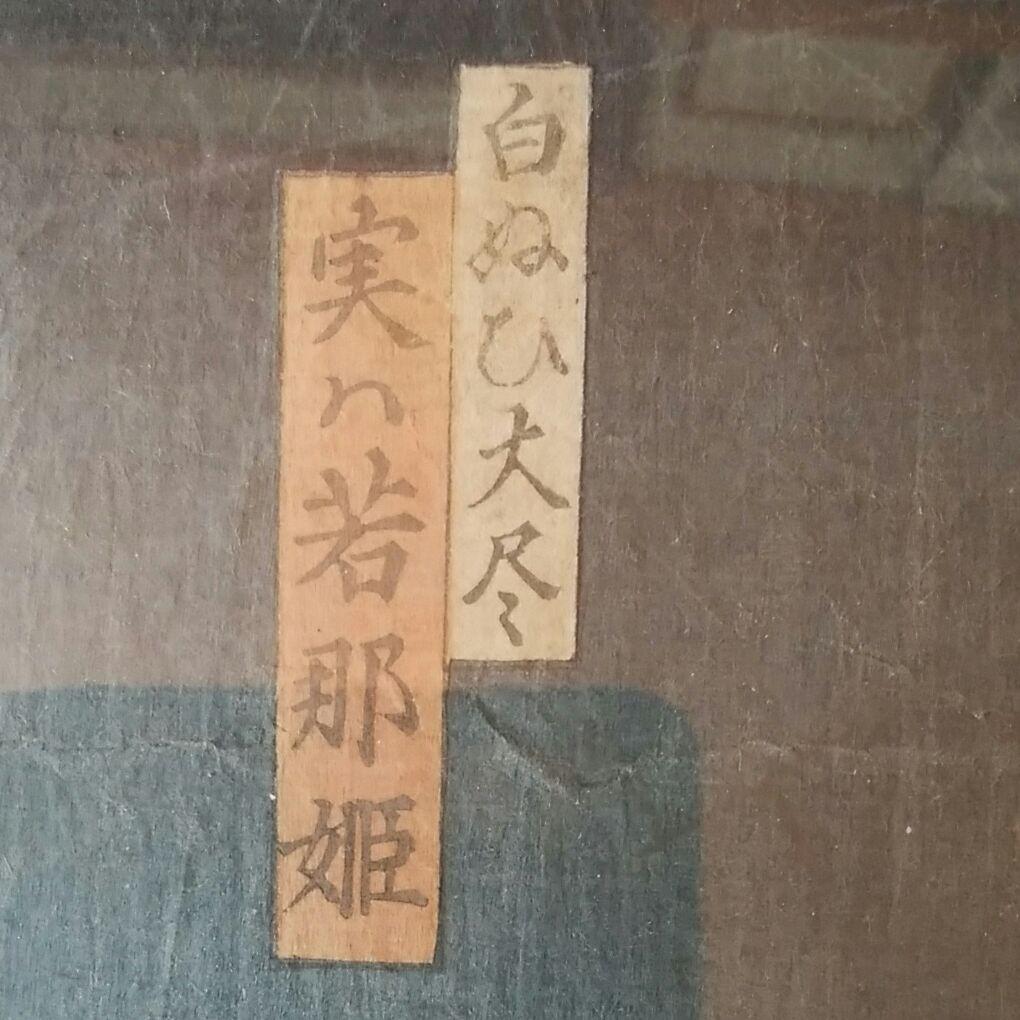 白ぬひ大尽
実ハ若那姫